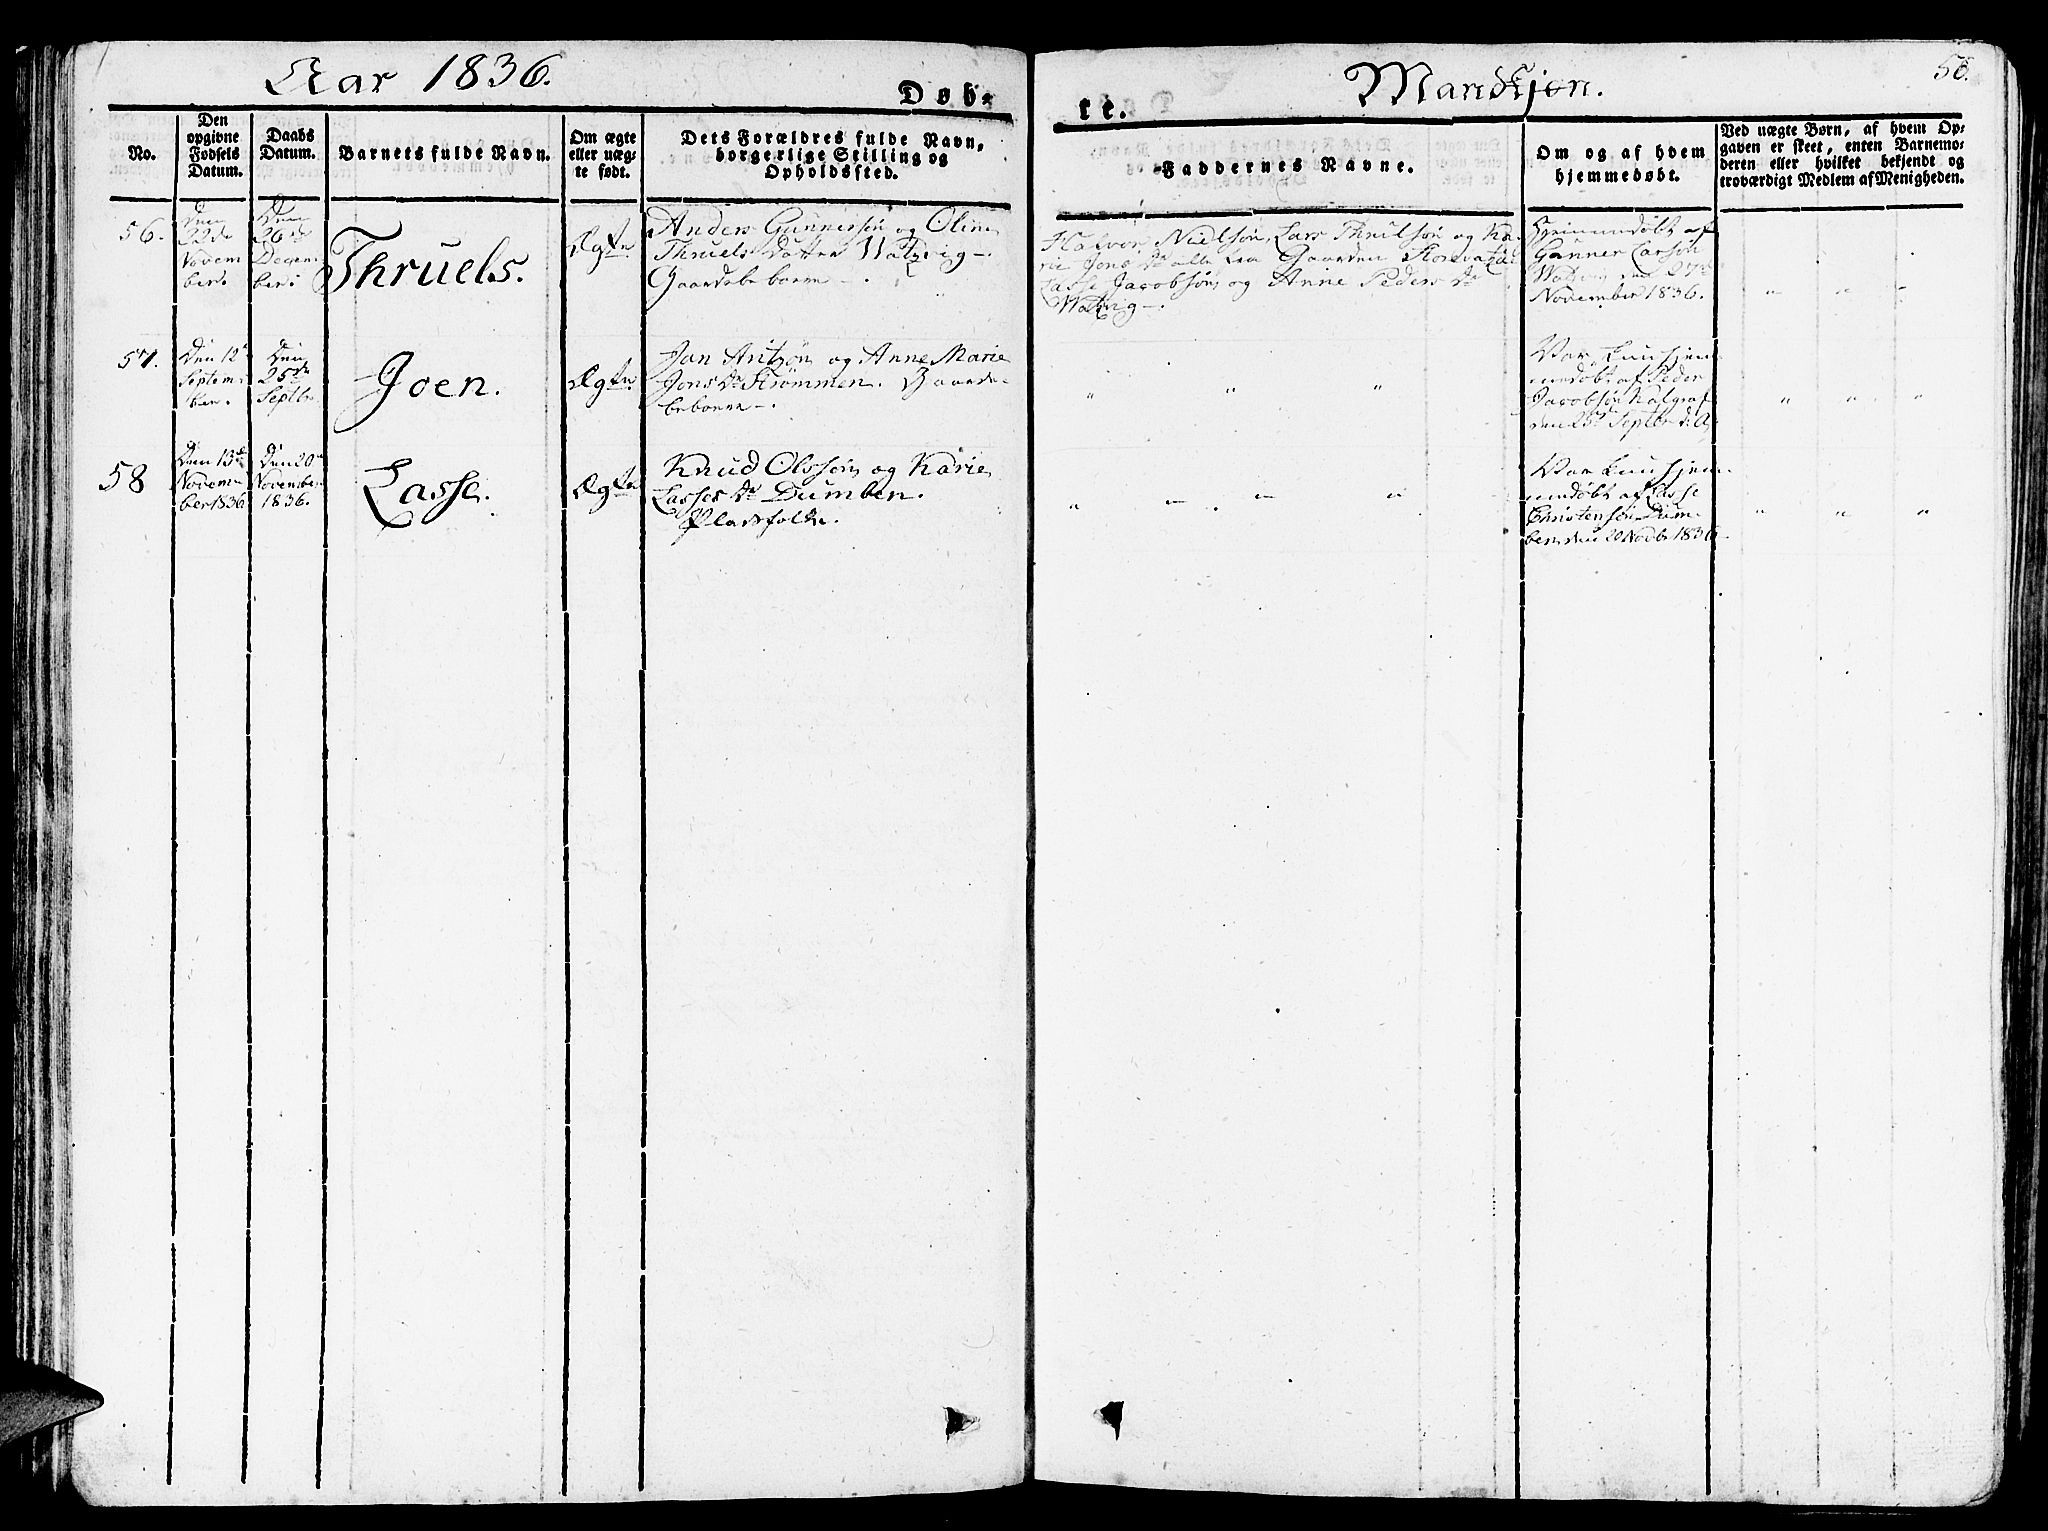 Aar 1836.
Døb-
te.
Mandkjøn.
50.
No.
Den
opgivne
Fødsels
Datum.
Daabs
Datum.
Barnets fulde Navn.
Om ægte
eller uæg-
te født.
Dets Forældres fulde Navn,
borgerlige Stilling og
Opholdssted.
Faddernes Navne.
Om og af hvem
hjemmedøbt.
Ved uægte Børn, af hvem Op-
gaven er skeet, enten Barnemo-
deren eller hvilket bekjendt og
troværdigt Medlem af Menigheden.
56.
Den
22de
Novem
ber.
Den
26de
Decem
ber.
Thruels.
Ægte
Anders Gunnersøn og Oline
Thruels Datter Watzvig -.
Gaardebeboere -.
Halvor Nielsøn, Lars Thrulsøn og Ka-
rie Jons Dr alle fra Gaarden
Lasse Jacobsøn og Anne Peders Dr
Watzvig -.
Hjemmedøbt af
Gunner Larsøn
Watzvig den 27de
November 1836.
57.
Den 12te
Septem-
ber.
Den
25de
Septbr
Joen.
Ægte
Jan Antzøn og Anne Marie
Jons Dr Strømmen. Gaard-
beboere -.
" " "
Var kun hjem-
medøbt af Peder
Jacobsøn Kalgraf
den 25de Septbr d. A.
" " "
58
Den 13de
Novem
ber 1836
Den 20de
November
1836.
Lasse.
Ægte
Knud Olssøn og Karie
Lasses Dr Dumben.
Pladsfolk.
" " "
Var kun hjem-
medøbt af Lasse
Christensøn Dum-
ben, den 20 Novbr 1836.
" " "